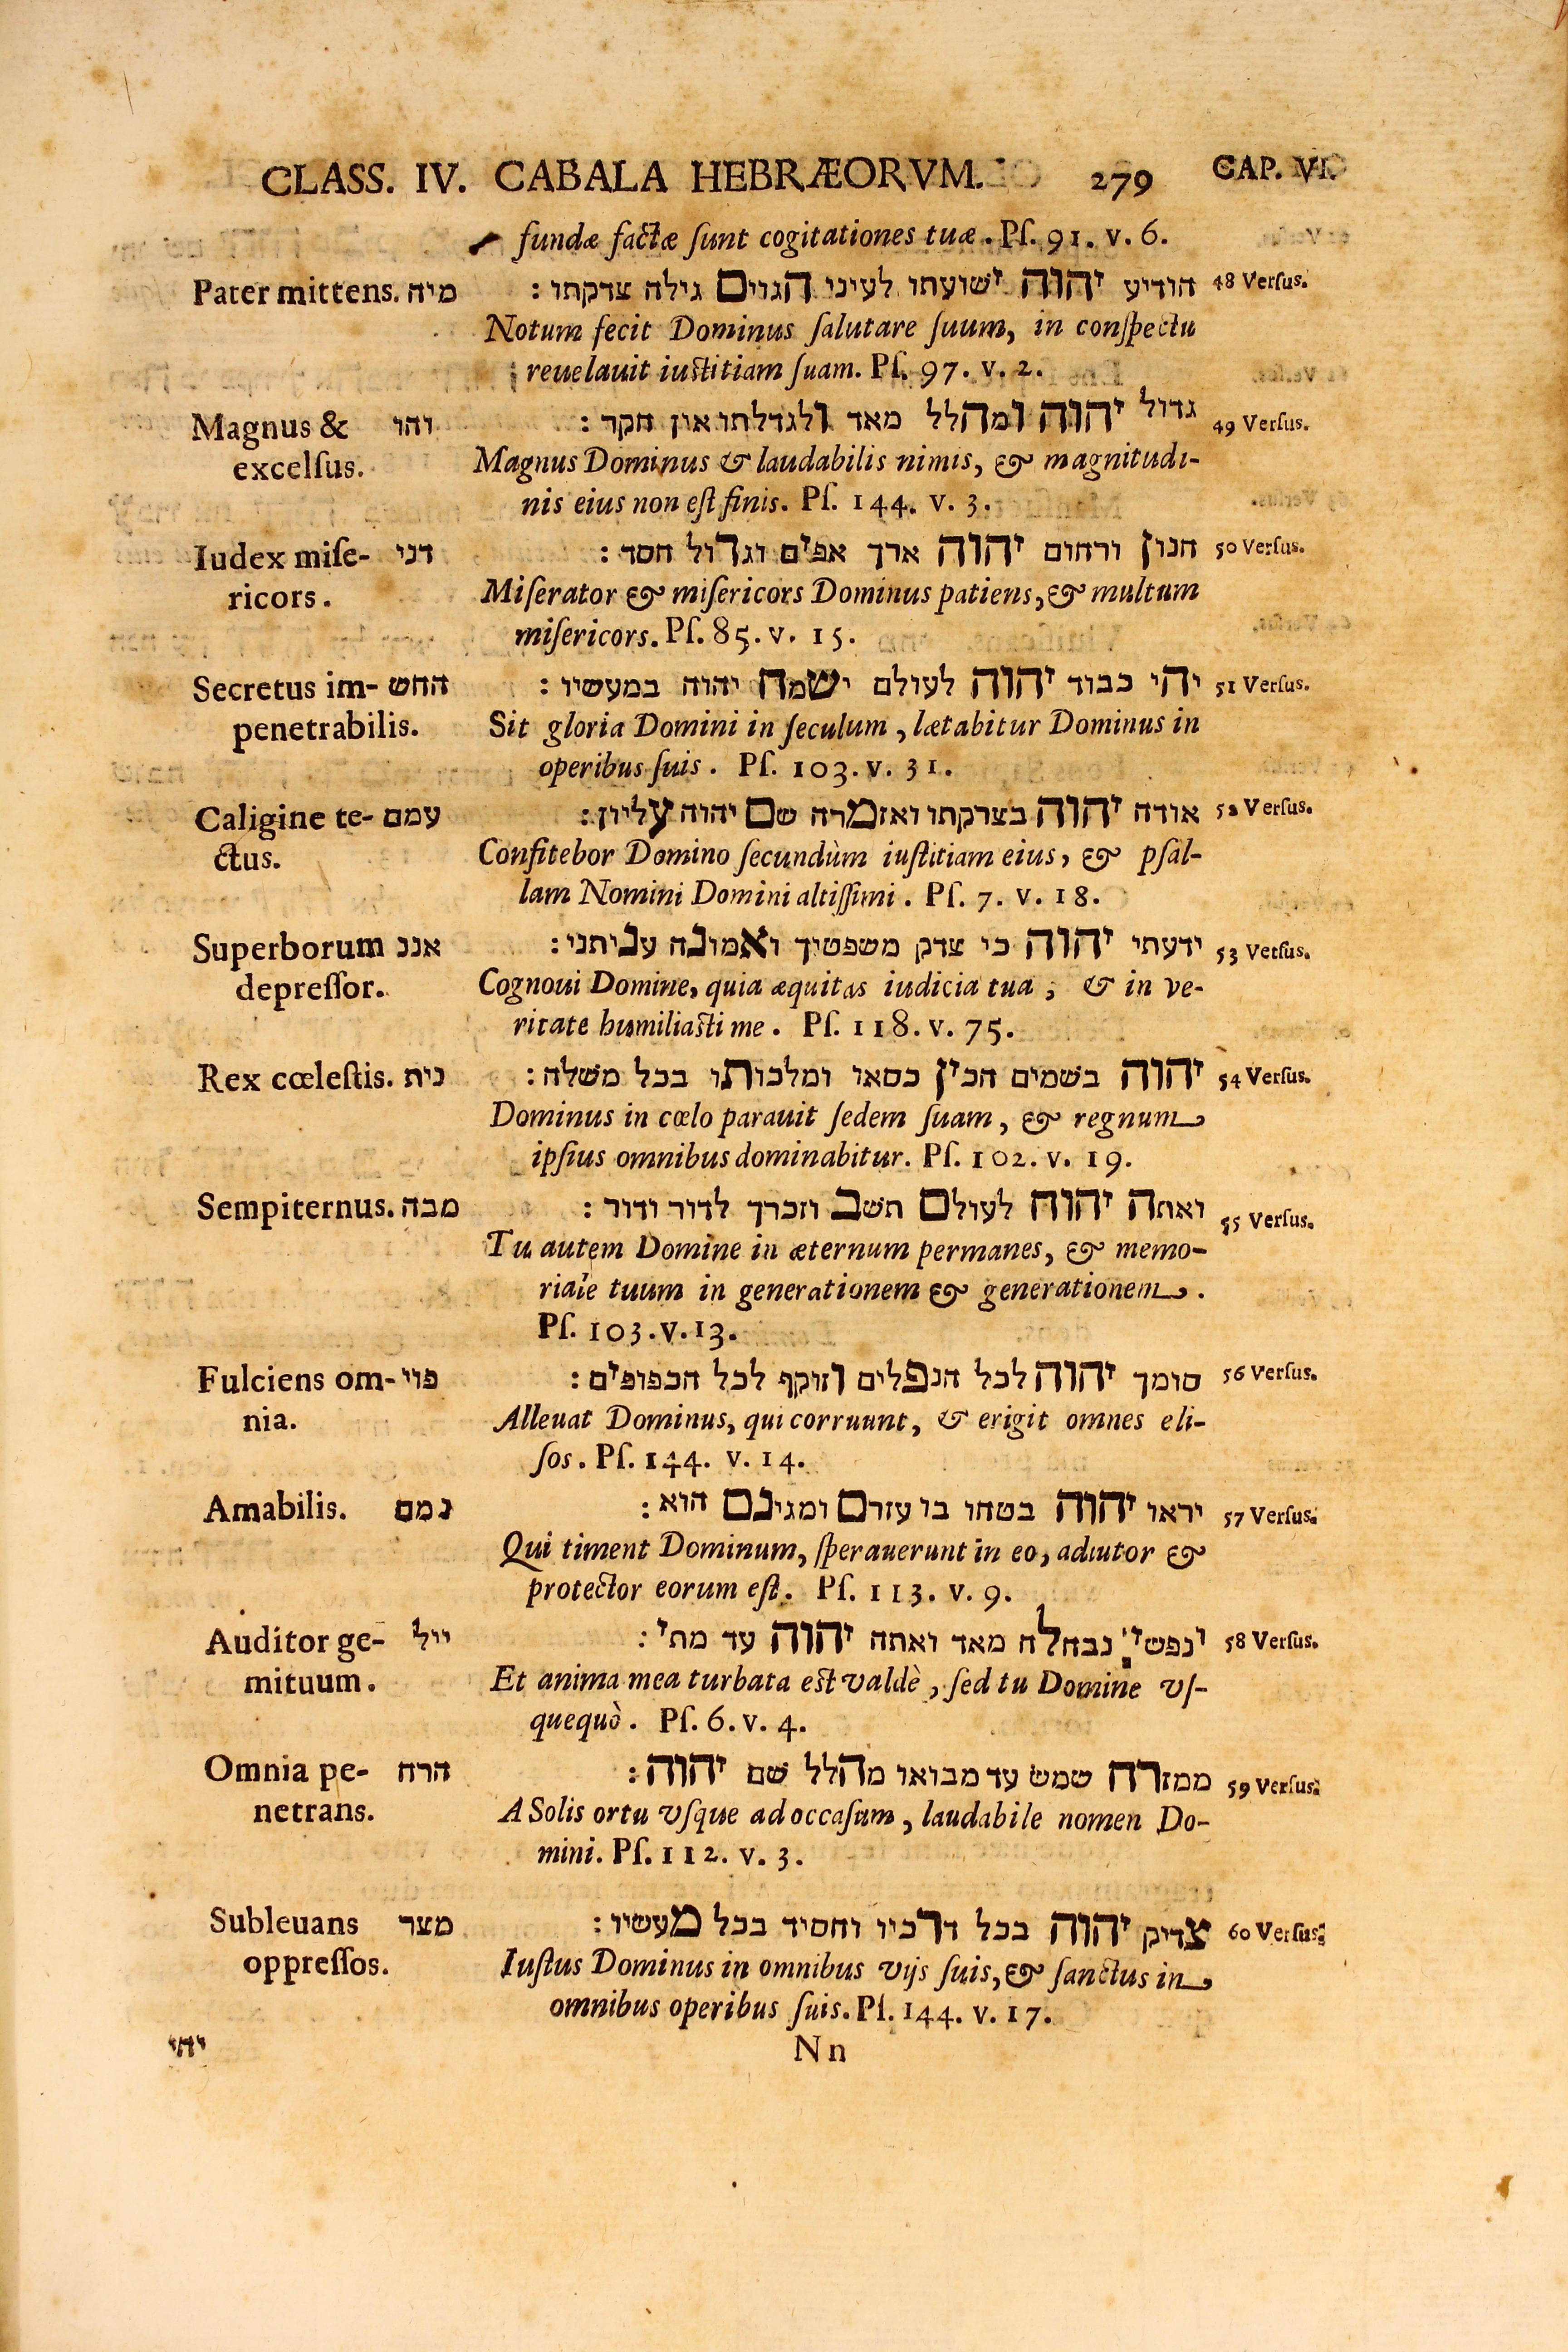 CLASS. IV. CABALA HEBRÆORVM. 279 CAP. VI.
fundæ factæ ſunt cogitationes tuæ. Pſ. 91. v. 6.
Pater mittens. מיה הודיע יהוה ישועתו לעיני הגוים גילה צדקתו : 48 Verſus.
Notum fecit Dominus ſalutare ſuum, in conſpectu
reuelauit iuſtitiam ſuam. Pſ. 97. v. 2.
Magnus & והו גדול יהוה ומהלל מאד ולגדלתו און חקר : 49 Verſus.
excelſus. Magnus Dominus & laudabilis nimis, & magnitudi-
nis eius non eſt finis. Pſ. 144. v. 3.
Iudex miſe- דני חנון ורחום יהוה ארך אפים וגדול חסד : 50 Verſus.
ricors. Miſerator & miſericors Dominus patiens, & multum
miſericors. Pſ. 85. v. 15.
Secretus im- החש יהי כבוד יהוה לעולם ישמח יהוה במעשיו : 51 Verſus.
penetrabilis. Sit gloria Domini in ſeculum, lætabitur Dominus in
operibus ſuis. Pſ. 103. v. 31.
Caligine te- עמם אודה יהוה בצרקתו ואזמרה שם יהוה עליון : 52 Verſus.
ctus. Confitebor Domino ſecundùm iuſtitiam eius, & pſal-
lam Nomini Domini altiſſimi. Pſ. 7. v. 18.
Superborum אננ ידעתי יהוה כי צדק משפטיך ואמונה עניתני : 53 Verſus.
depreſſor. Cognoui Domine, quia æquitas iudicia tua, & in ve-
ritate humiliaſti me. Pſ. 118. v. 75.
Rex cœleſtis. נית יהוה בשמים הכין כסאו ומלכותו בכל משלה : 54 Verſus.
Dominus in cœlo parauit ſedem ſuam, & regnum
ipſius omnibus dominabitur. Pſ. 102. v. 19.
Sempiternus. מבה ואתה יהוה לעולם תשב וזכרך לדור ודור : 55 Verſus.
Tu autem Domine in æternum permanes, & memo-
riale tuum in generationem & generationem.
Pſ. 103. v. 13.
Fulciens om- פוי סומך יהוה לכל הנפלים וזוקף לכל הכפופים : 56 Verſus.
nia. Alleuat Dominus, qui corruunt, & erigit omnes eli-
ſos. Pſ. 144. v. 14.
Amabilis. נמם יראו יהוה בטחו בו עזרם ומגינם הוא : 57 Verſus.
Qui timent Dominum, ſperauerunt in eo, adiutor &
protector eorum eſt. Pſ. 113. v. 9.
Auditor ge- ייל ונפשי נבחלח מאד ואתה יהוה עד מתי : 58 Verſus.
mituum. Et anima mea turbata eſt valdè, ſed tu Domine vſ-
quequò. Pſ. 6. v. 4.
Omnia pe- הרח ממזרח שמש עד מבואו מהלל שם יהוה : 59 Verſus.
netrans. A Solis ortu vſque ad occaſum, laudabile nomen Do-
mini. Pſ. 112. v. 3.
Subleuans מצר צדיק יהוה בכל דרכיו וחסיד בכל מעשיו : 60 Verſus.
oppreſſos. Iuſtus Dominus in omnibus vijs ſuis, & ſanctus in
omnibus operibus ſuis. Pſ. 144. v. 17.
Nn
יהי